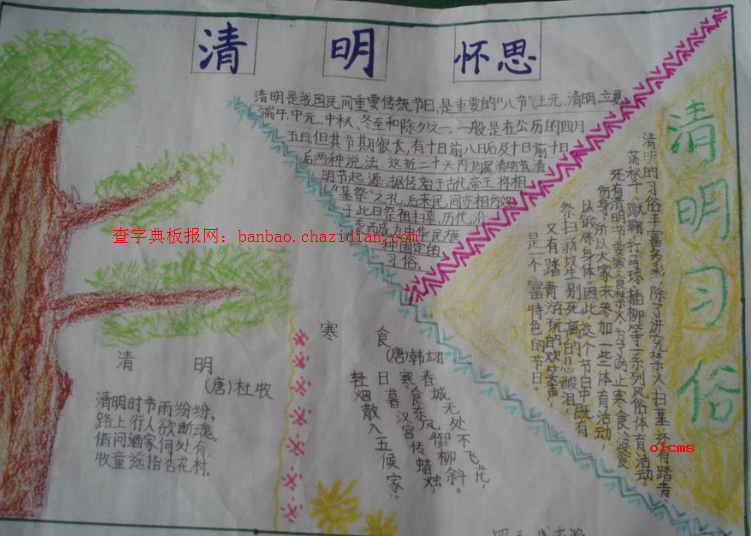 清明 怀思
清明是我国民间重要传统节日,是重要的“八节”(上元、清明、立夏、
端午、中元、中秋、冬至和除夕)之一,一般是在公历的四月
五日,但其节期很长,有十日前八日后及十日前十日
后两种说法,这近二十天内均属清明节。清
明节起源,据传始于古代帝王将相
“墓祭”之礼,后来民间亦相仿效,
于此日祭祖扫墓,历代沿
袭而成为中华民族
一种固定的
习俗。
查字典板报网:banbao.chazidian.com
清明习俗
清明的习俗丰富多彩,除了讲究禁火、扫墓,还有踏青、
荡秋千、蹴鞠、打马球、插柳等一系列风俗体育活动。
还有清明节要寒食禁火,为了防止寒食冷餐
伤身,所以大家来参加一些体育活动,
以锻炼身体。因此,这个节日中既有
祭扫新坟生别死离的悲酸泪,
又有踏青游玩的欢笑声,
是一个富特色的节日。
清 明
(唐)杜牧
清明时节雨纷纷,
路上行人欲断魂。
借问酒家何处有,
牧童遥指杏花村。
寒 食
(唐)韩翃
春城无处不飞花,
寒食东风御柳斜。
日暮汉宫传蜡烛,
轻烟散入五侯家。
olcms